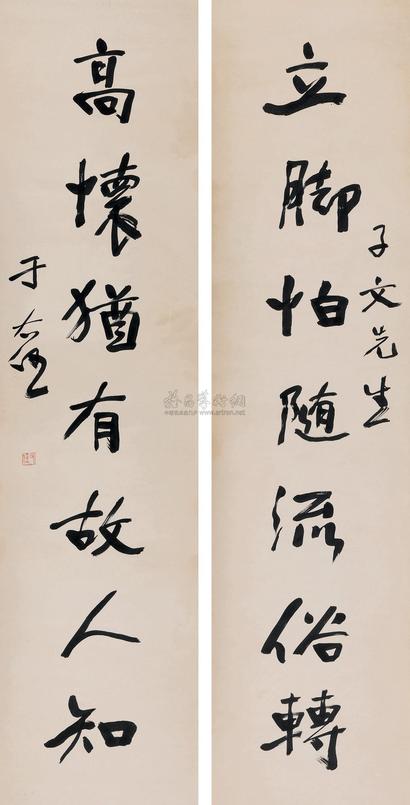 立脚怕随流俗轉
子文先生
高懷猶有故人知
于右任
雅昌藝術網
www.artron.net